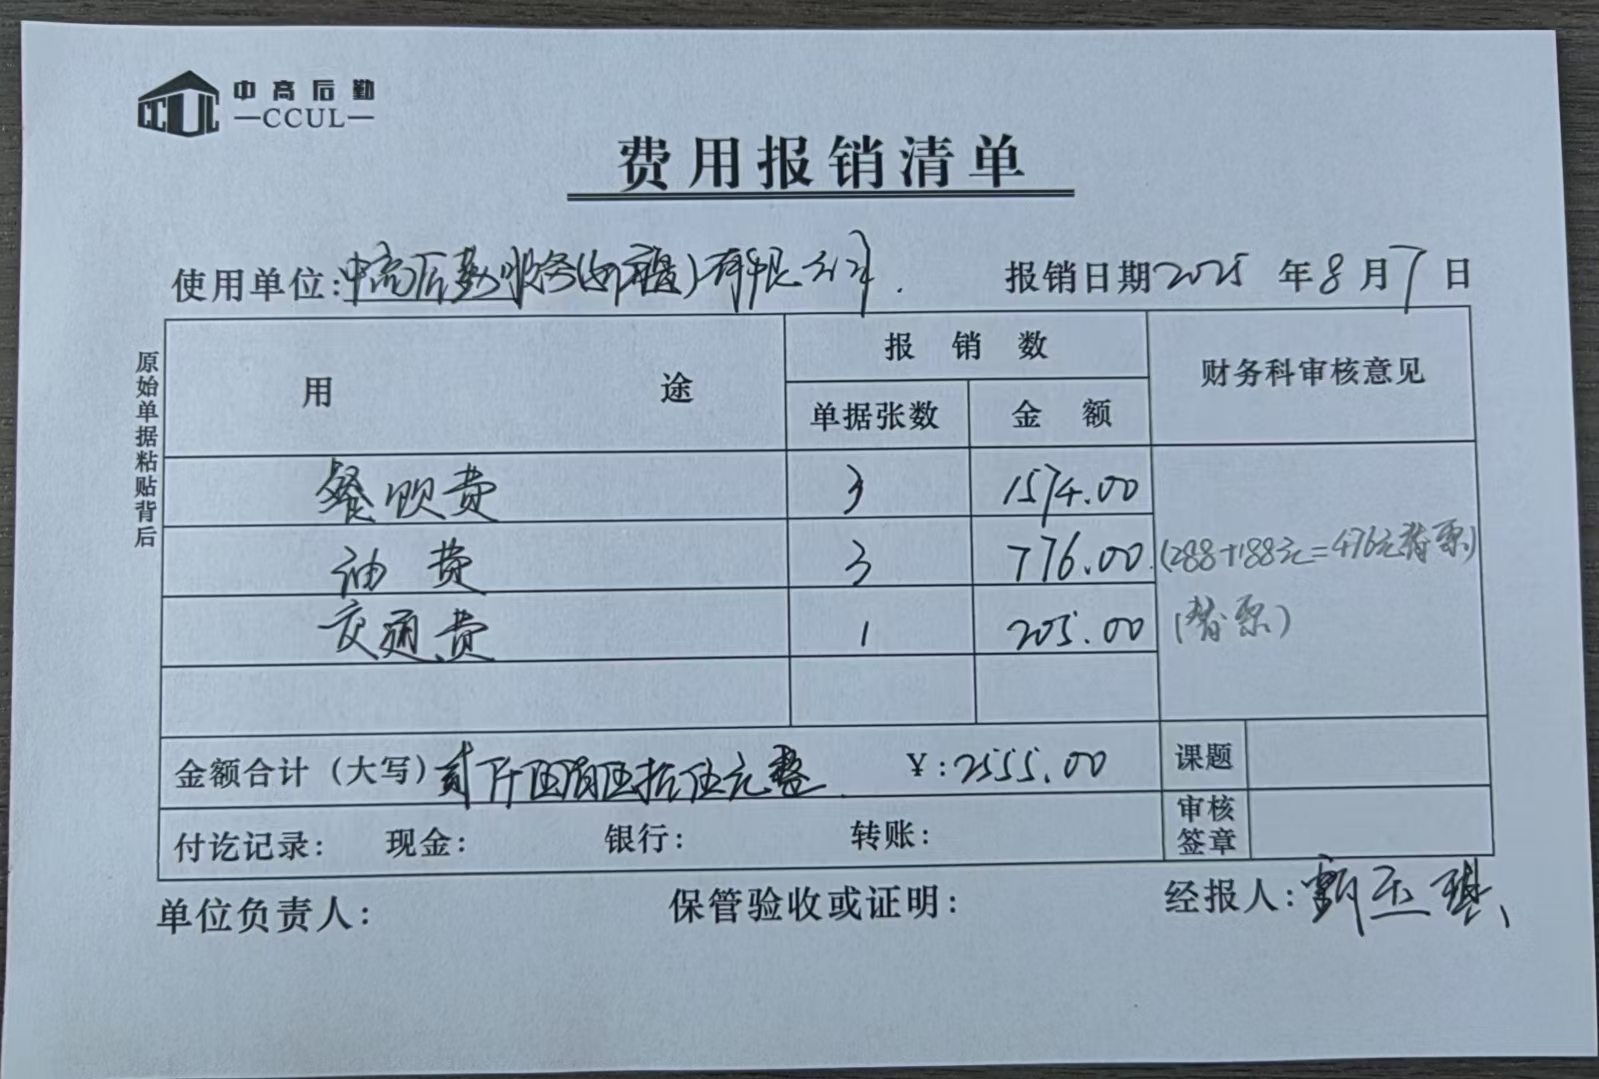 中高后勤
CCUL —CCUL—
费用报销清单
使用单位:中高后勤服务()有限公司. 报销日期2025年8月7日
原始单据粘贴背后
用途 报销数 财务科审核意见
单据张数 金额
餐饮费 3 1574.00
油费 3 776.00 (288+188元=476元替票)
交通费 1 205.00 (替票)
金额合计(大写)贰仟伍佰伍拾伍元整 ¥:2555.00 课题
付讫记录: 现金: 银行: 转账: 审核签章
单位负责人: 保管验收或证明: 经报人: